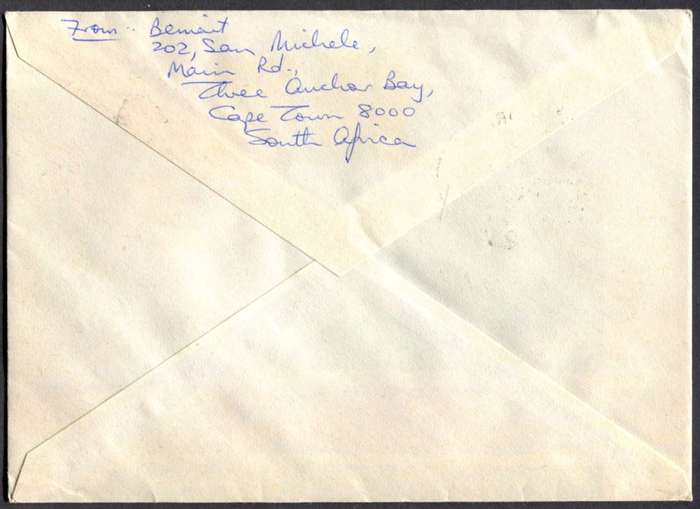 From: Bemait
202, San Michele,
Main Rd.,
Three Anchor Bay,
Cape Town 8000
South Africa